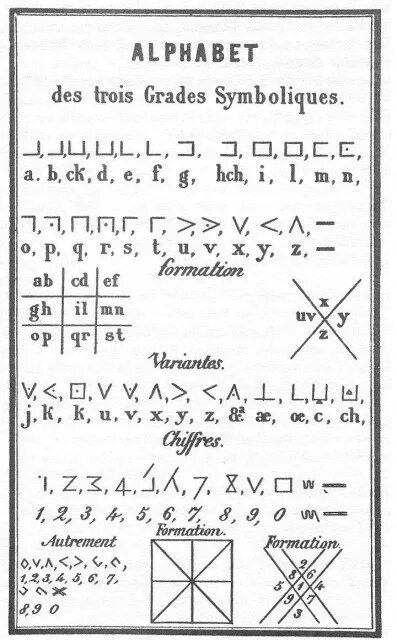 ALPHABET
des trois Grades Symboliques.
a. b, ck, d, e, f, g, hch, i, l, m, n,
o, p, q, r, s, t, u, v, x, y, z,
formation
ab cd ef
gh il mn
op qr st
x
uv y
z
Variantes.
j, k, k, u, v, x, y, z, &ª æ, œ, c, ch,
Chiffres.
1, 2, 3, 4, 5, 6, 7, 8, 9, 0
Autrement
1, 2, 3, 4, 5, 6, 7,
8, 9 0
Formation.
Formation.
2
8 6
5 1 4
9 7
3